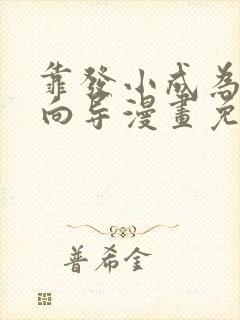 靠發小成為
向导漫畫免
普希金